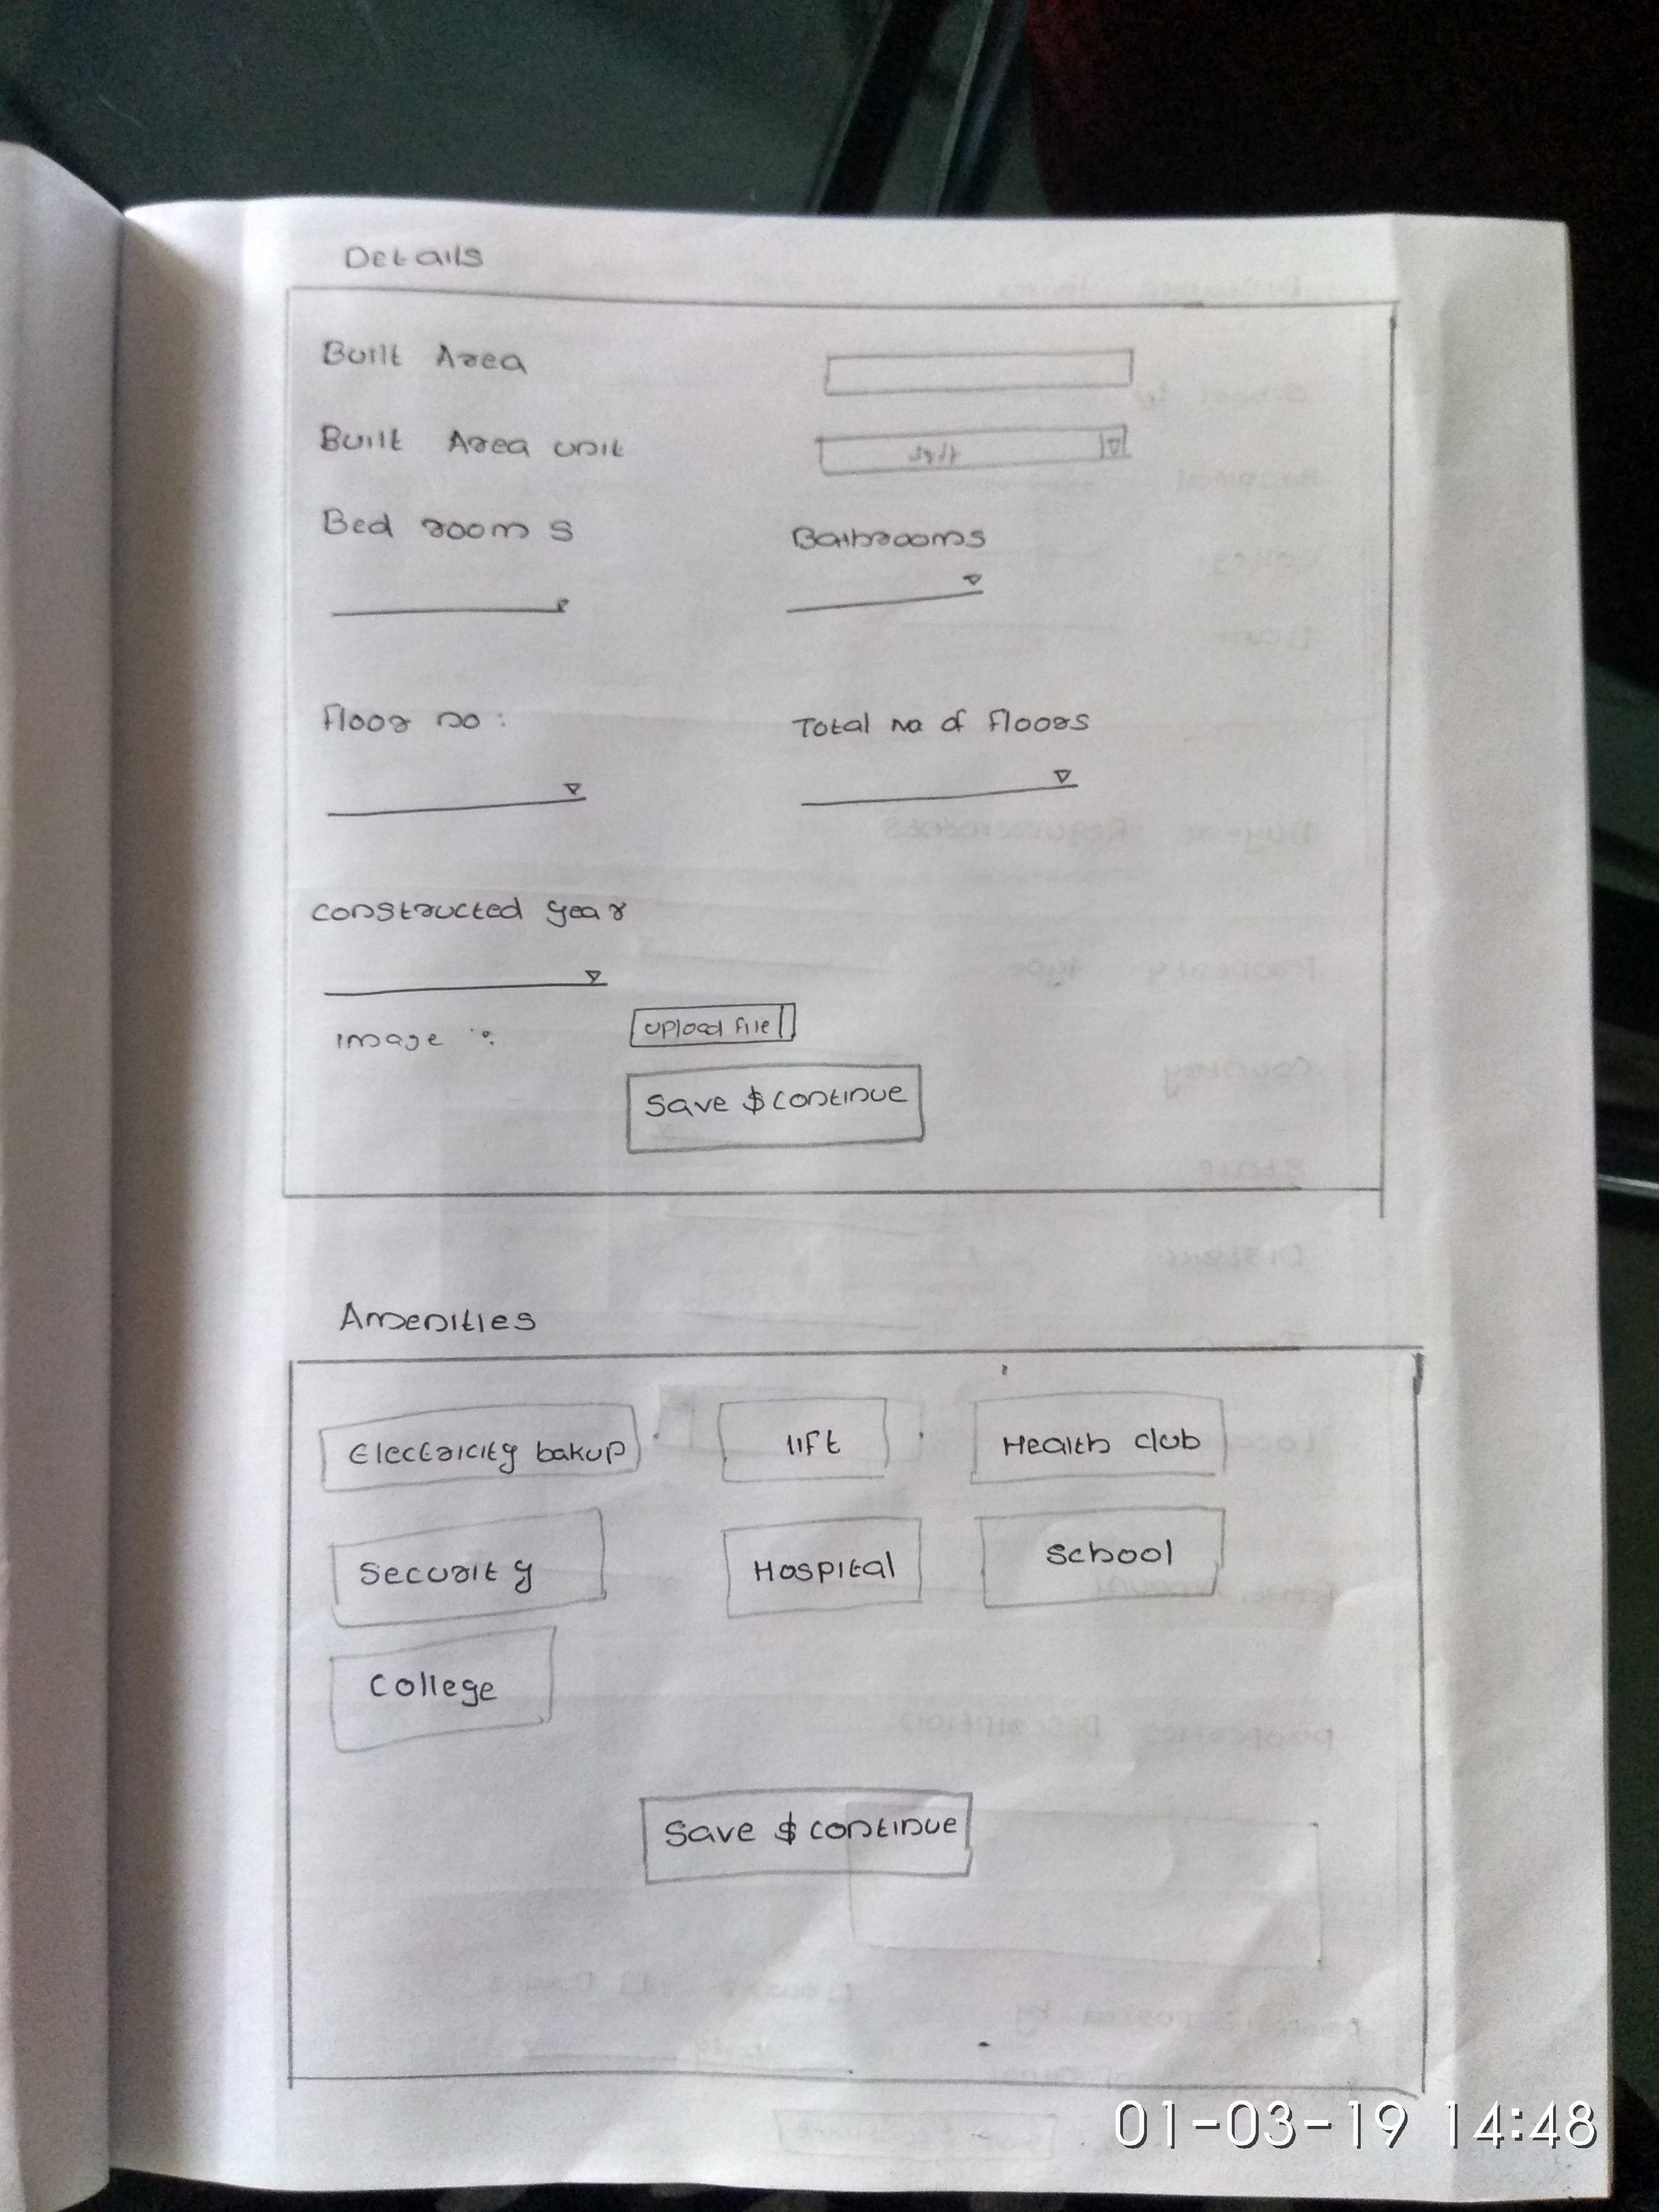 Details
Built Area
Built Area unit
Bed rooms Bathrooms
floor no : Total no of floors
constructed year
image : upload file
Save $ continue
Amenities
Electricity bakup lift Health club
Security Hospital School
College
Save $ continue
01-03-19 14:48